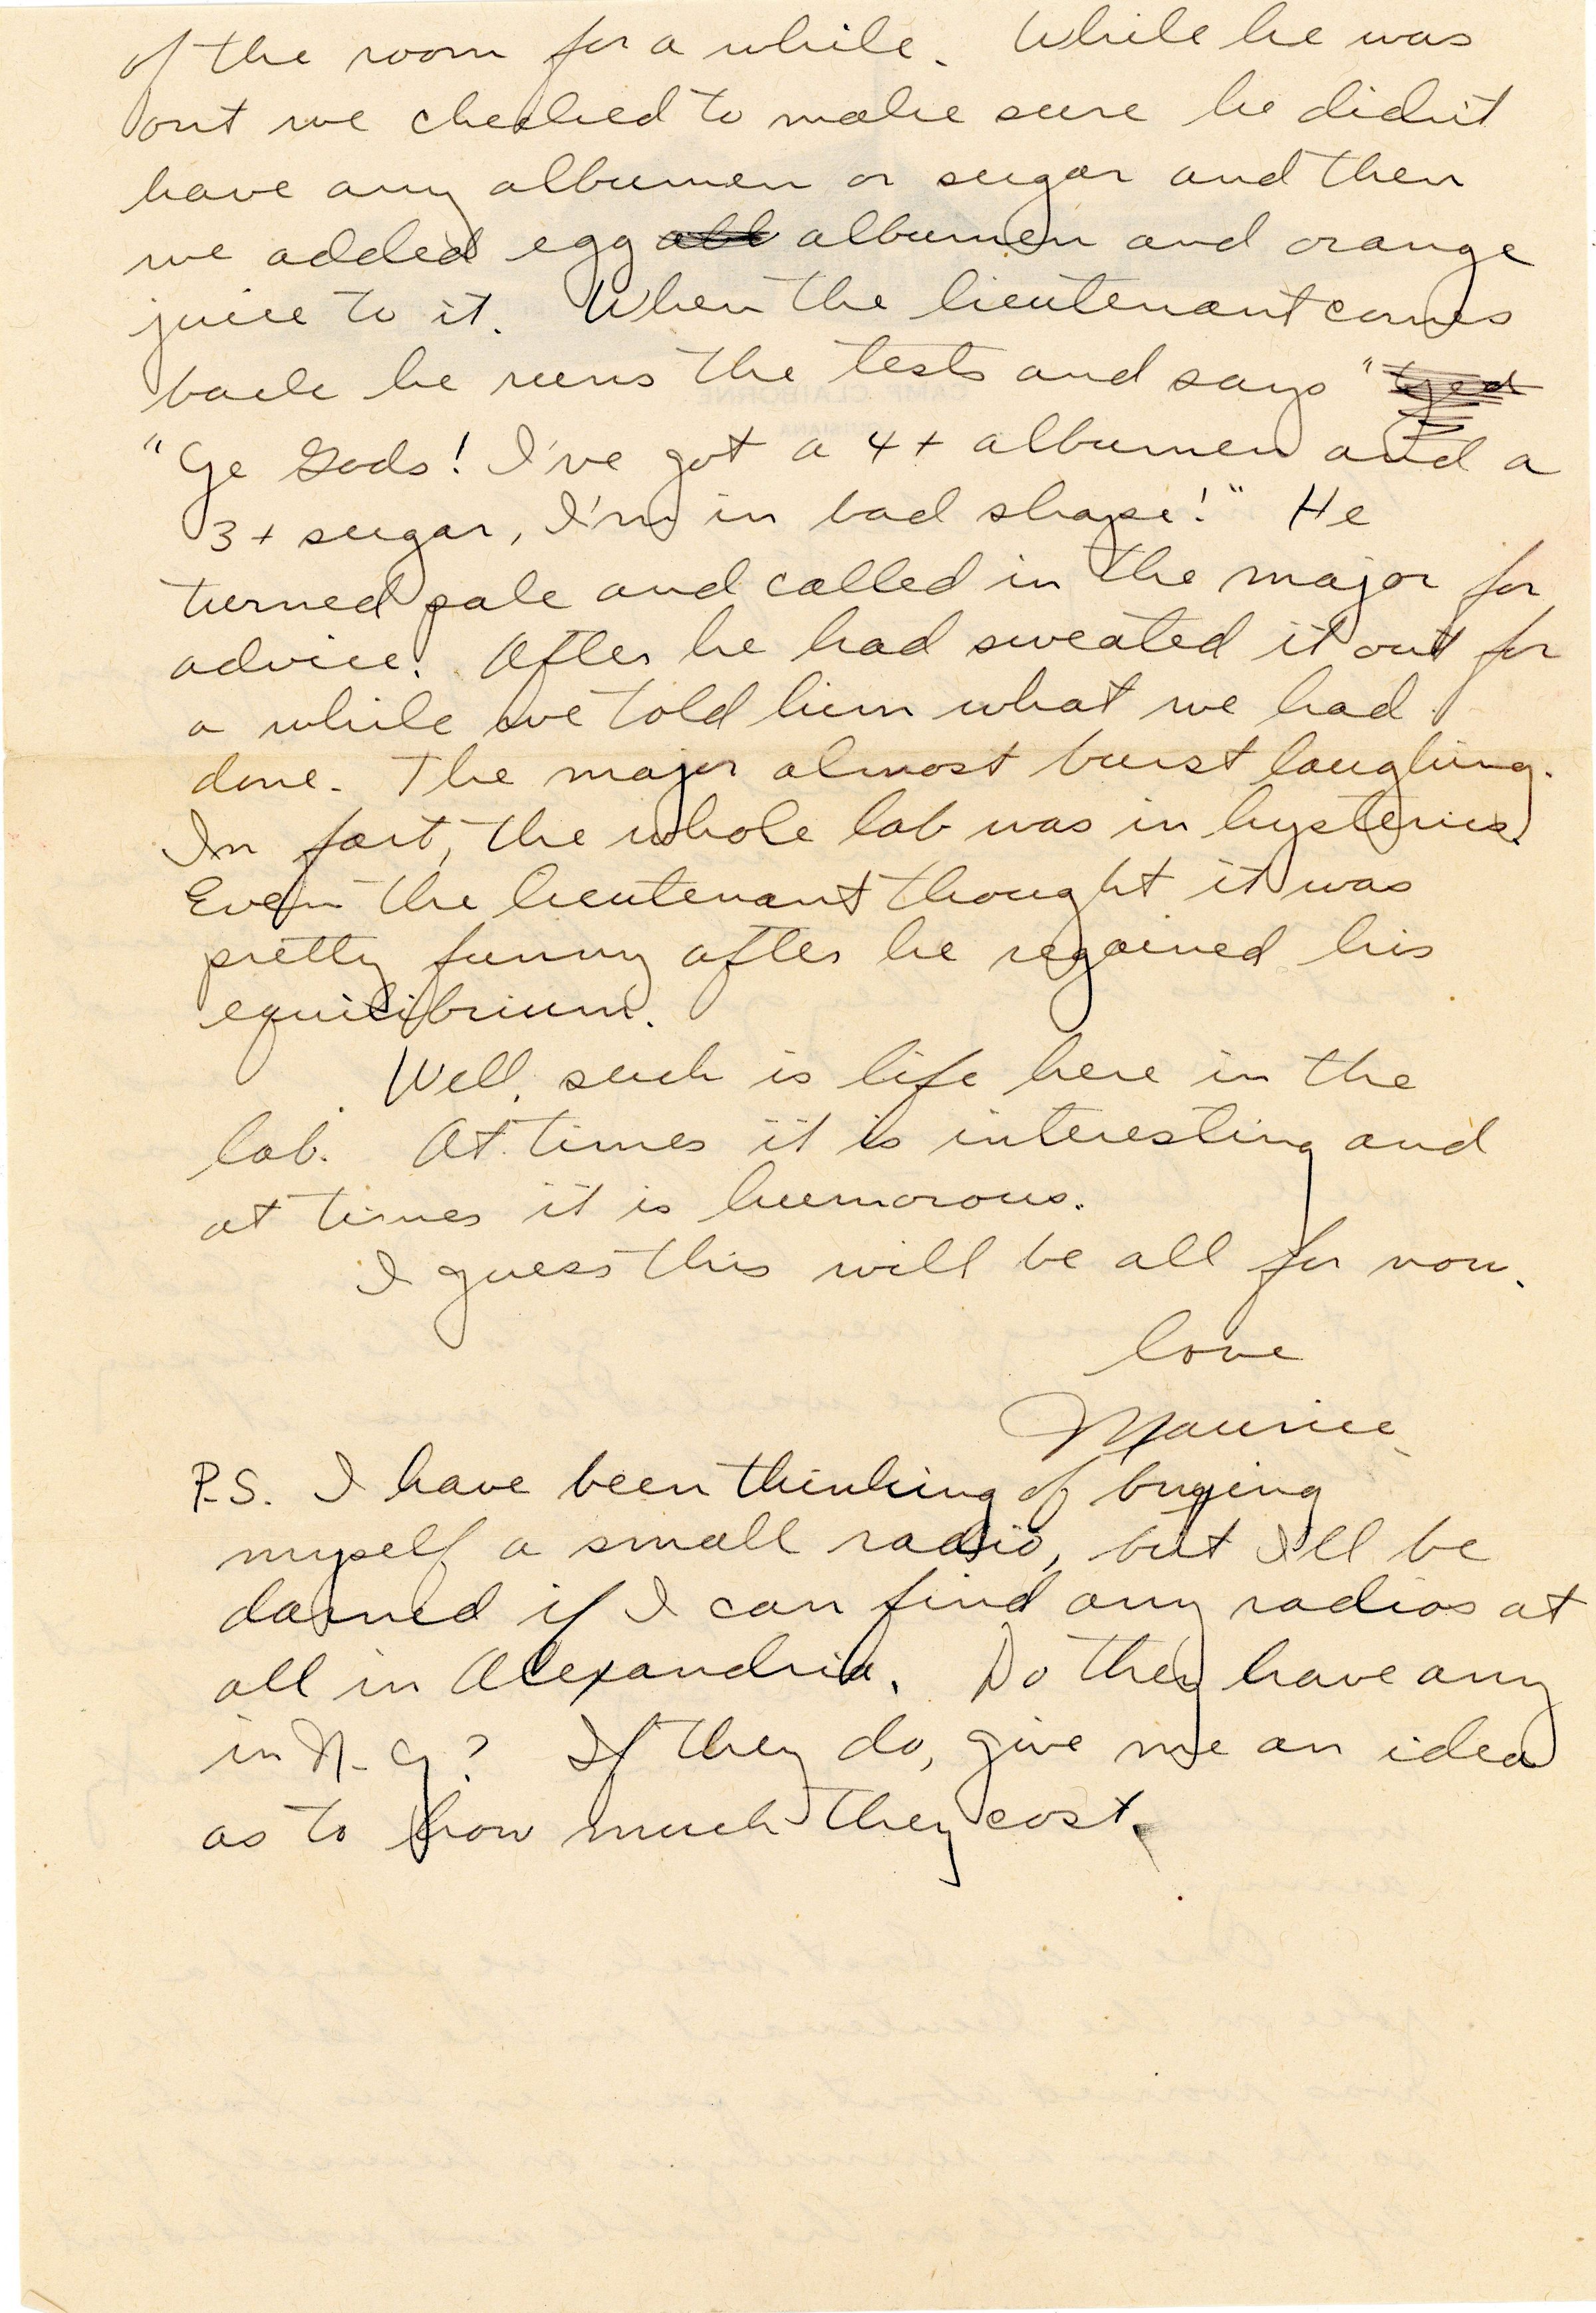 of the room for a while. While he was
out we checked to make sure he didn't
have any albumen or sugar and then
we added egg albumen and orange
juice to it. When the lieutenant comes
back he runs the tests and says "
"Ye Gods! I've got a 4+ albumen and a
3+ sugar, I'm in bad shape!" He
turned pale and called in the major for
advice. After he had sweated it out for
a while we told him what we had
done. The major almost burst laughing.
In fact, the whole lab was in hysterics.
Even the lieutenant thought it was
pretty funny after he regained his
equilibrium.
Well, such is life here in the
lab. At times it is interesting and
at times it is humorous.
I guess this will be all for now.
Love
Maurice
P.S. I have been thinking of buying
myself a small radio, but I'll be
darned if I can find any radios at
all in Alexandria. Do they have any
in N.Y.? If they do, give me an idea
as to how much they cost.